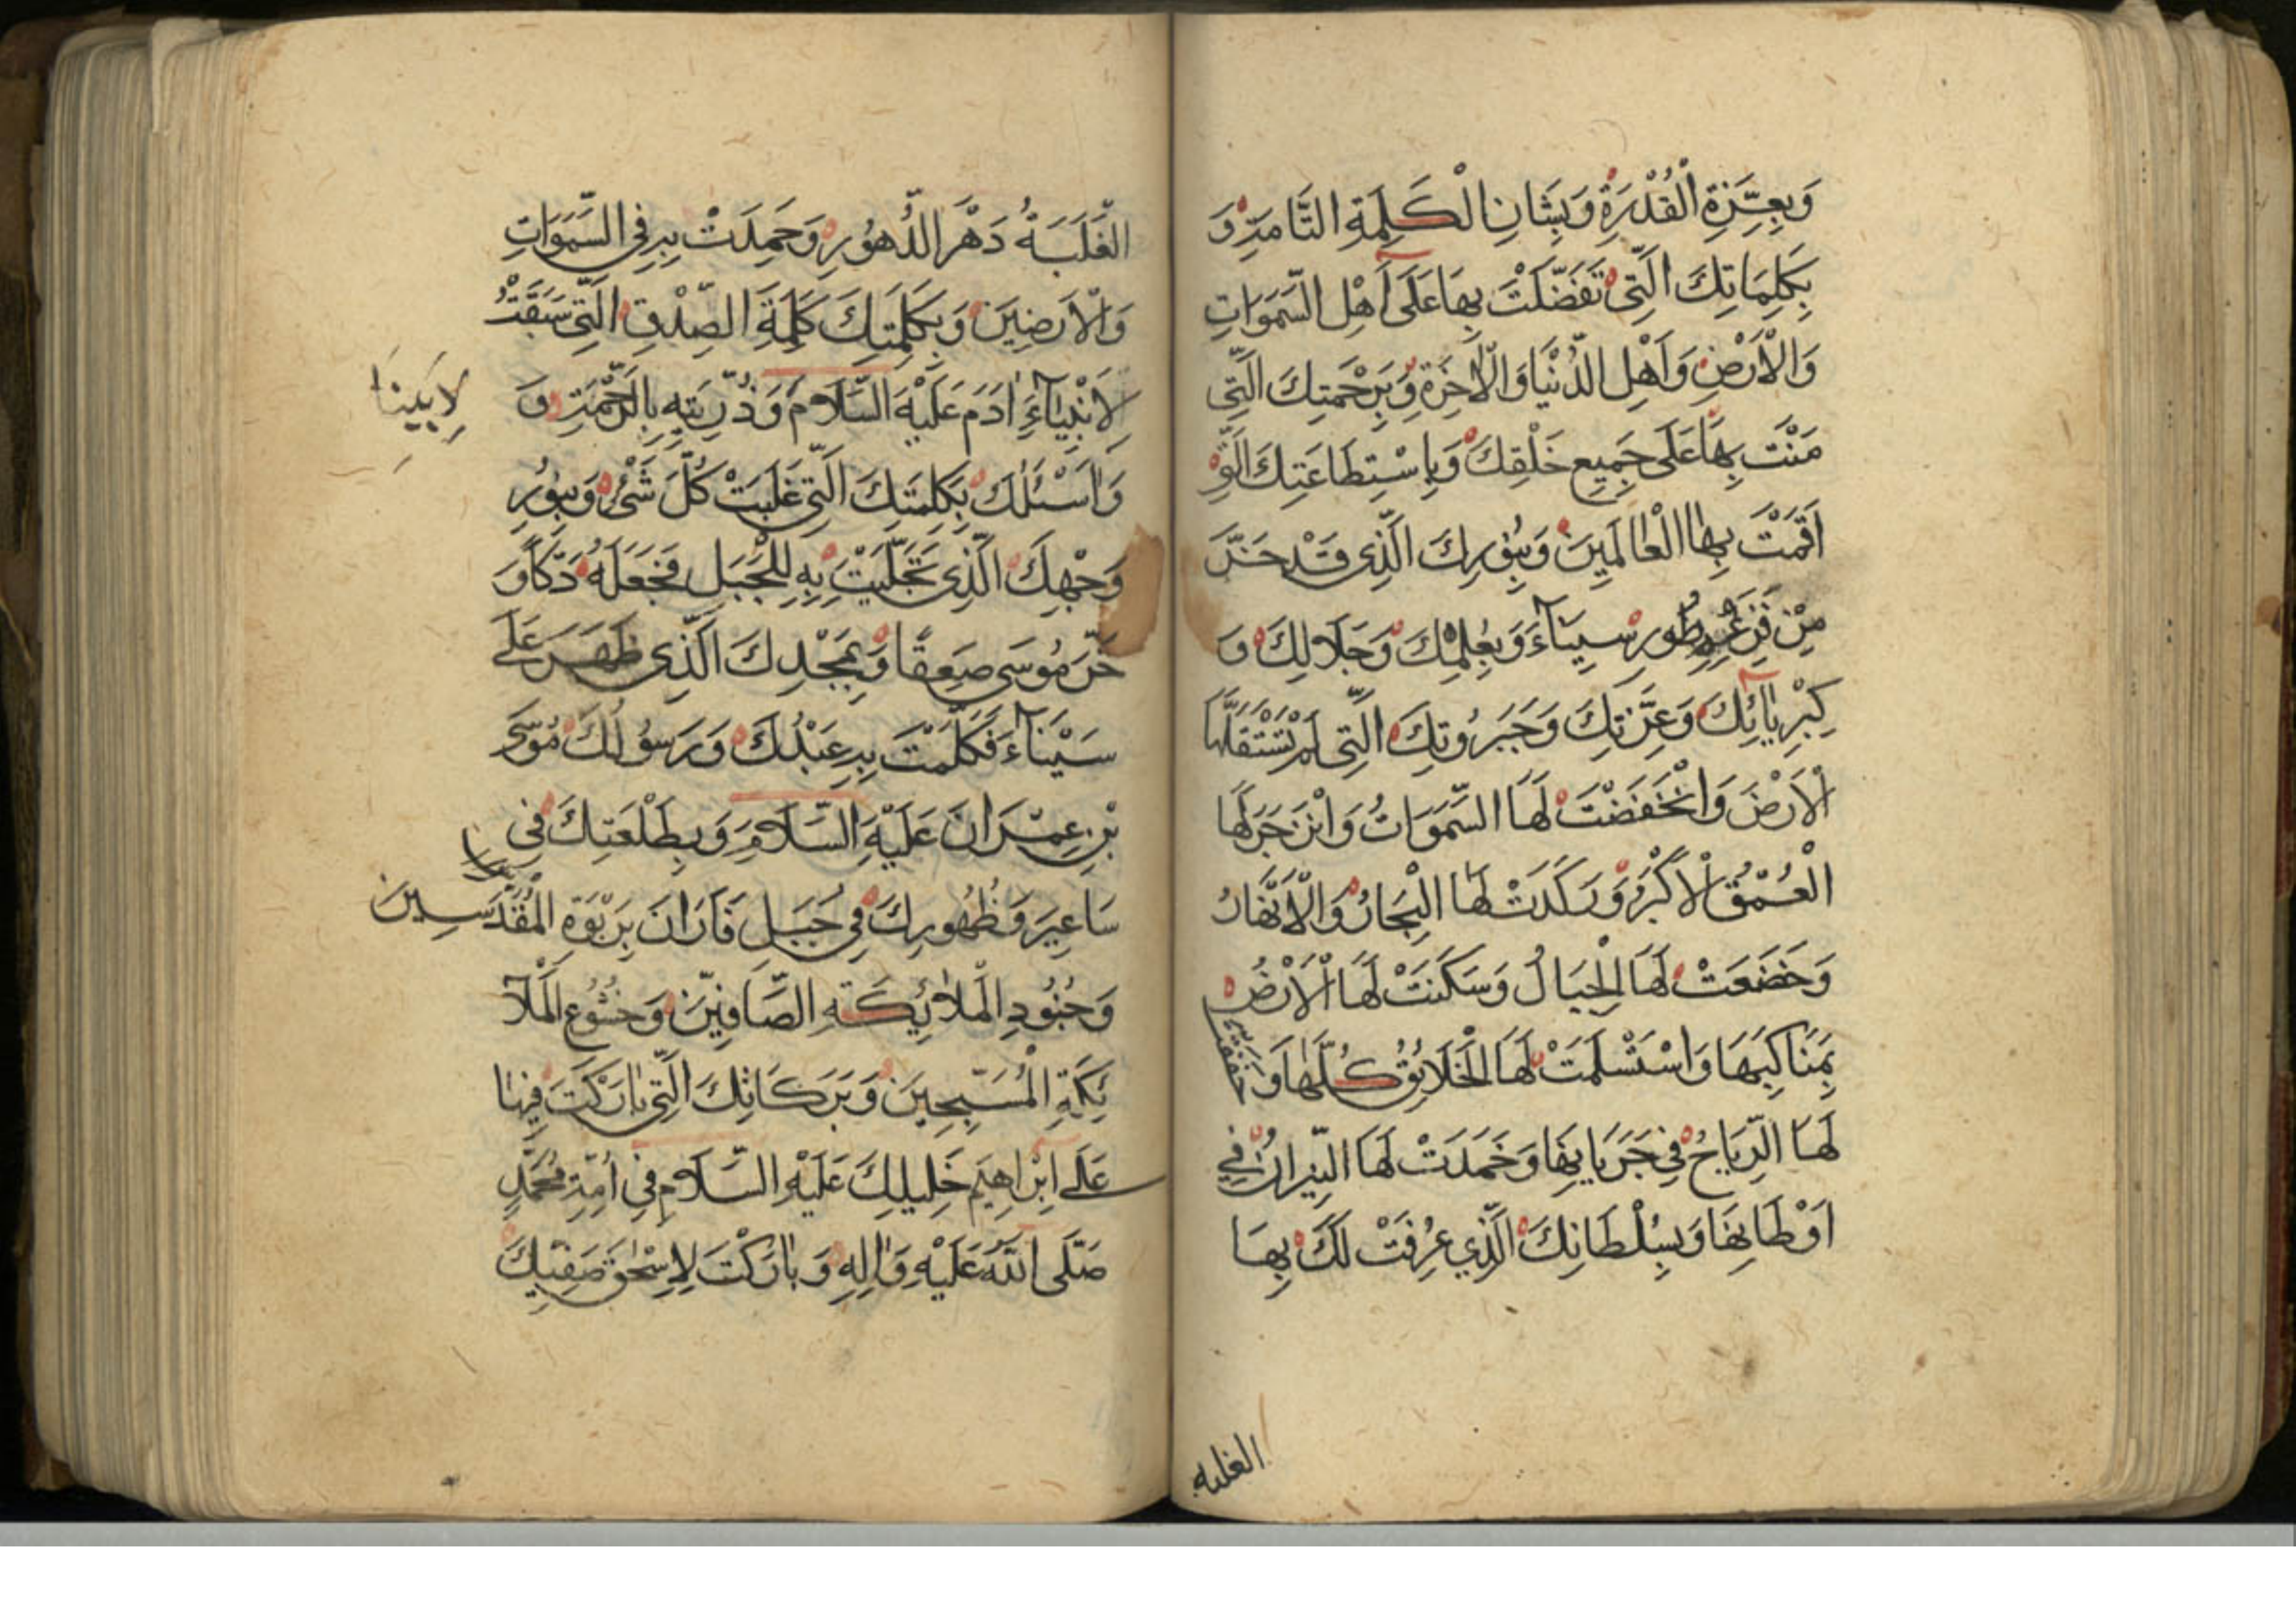 وَبِعِزَّةِ الْقُدْرَةِ وَبِشَانِ الْكَلِمَةِ التَّامَّةِ وَ
بِكَلِمَاتِكَ الَّتِي تَفَضَّلْتَ بِهَا عَلَى اَهْلِ السَّمَوَاتِ
وَالْاَرْضِ وَاَهْلِ الدُّنْيَا وَالْاٰخِرَةِ وَبِرَحْمَتِكَ الَّتِي
مَنَنْتَ بِهَا عَلَى جَمِيعِ خَلْقِكَ وَبِاسْتِطَاعَتِكَ الَّتِي
اَقَمْتَ بِهَا الْعَالَمِينَ وَبِنُورِكَ الَّذِي قَدْ خَرَّ
مِنْ فَزَعِهِ طُورِ سِينَآءَ وَبِعِلْمِكَ وَجَلَالِكَ وَ
كِبْرِيَائِكَ وَعِزَّتِكَ وَجَبَرُوتِكَ الَّتِي لَمْ تَسْتَقِلَّهَا
الْاَرْضَ وَانْخَفَضَتْ لَهَا السَّمَوَاتُ وَانْزَجَرَ لَهَا
الْعُمْقُ الْاَكْبَرُ وَرَكَدَتْ لَهَا الْبِحَارُ وَالْاَنْهَارُ
وَخَضَعَتْ لَهَا الْجِبَالُ وَسَكَنَتْ لَهَا الْاَرْضُ
بِمَنَاكِبِهَا وَاسْتَسْلَمَتْ لَهَا الْخَلَائِقُ كُلُّهَا وَ
لَهَا الرِّيَاحُ فِي جَرَيَانِهَا وَخَمَدَتْ لَهَا النِّيرَانُ فِي
اَوْطَانِهَا وَبِسُلْطَانِكَ الَّذِي عُرِفَتْ لَكَ بِهَا
الغلبه
الْغَلَبَةُ دَهْرَ الدُّهُورِ وَحُمِدَتْ بِهِ فِي السَّمَوَاتِ
وَالْاَرَضِينَ وَبِكَلِمَتِكَ كَلِمَةَ الصِّدْقِ الَّتِي سَبَقَتْ
لِاَنْبِيَآءِ اٰدَمَ عَلَيْهِ السَّلَامُ وَذُرِّيَّتِهِ بِالرَّحْمَةِ وَ
لِاَبِينَا
وَاَسْئَلُكَ بِكَلِمَتِكَ الَّتِي غَلَبَتْ كُلَّ شَيْءٍ وَبِنُورِ
وَجْهِكَ الَّذِي تَجَلَّيْتَ بِهِ لِلْجَبَلِ فَجَعَلَهُ دَكًّا وَ
خَرَّ مُوسَى صَعِقًا وَبِمَجْدِكَ الَّذِي ظَهَرَ عَلَى
سَيْنَآءَ فَكَلَّمْتَ بِهِ عَبْدَكَ وَرَسُولَكَ مُوسَى
بْنِ عِمْرَانَ عَلَيْهِ السَّلَامِ وَبِطَلْعَتِكَ فِي
سَاعِيرَ وَظُهُورِكَ فِي جَبَلِ فَارَانَ بِرَبْوَةِ الْمُقَدَّسِينَ
وَجُنُودِ الْمَلَائِكَةِ الصَّافِّينَ وَخُشُوعِ الْمَلَآ
ئِكَةِ الْمُسَبِّحِينَ وَبَرَكَاتِكَ الَّتِي بَارَكْتَ فِيهَا
عَلَى اِبْرَاهِيمَ خَلِيلِكَ عَلَيْهِ السَّلَامِ فِي اُمَّةِ مُحَمَّدٍ
صَلَّى اللهُ عَلَيْهِ وَاٰلِهِ وَبَارَكْتَ لِاِسْحٰقَ صَفِيِّكَ